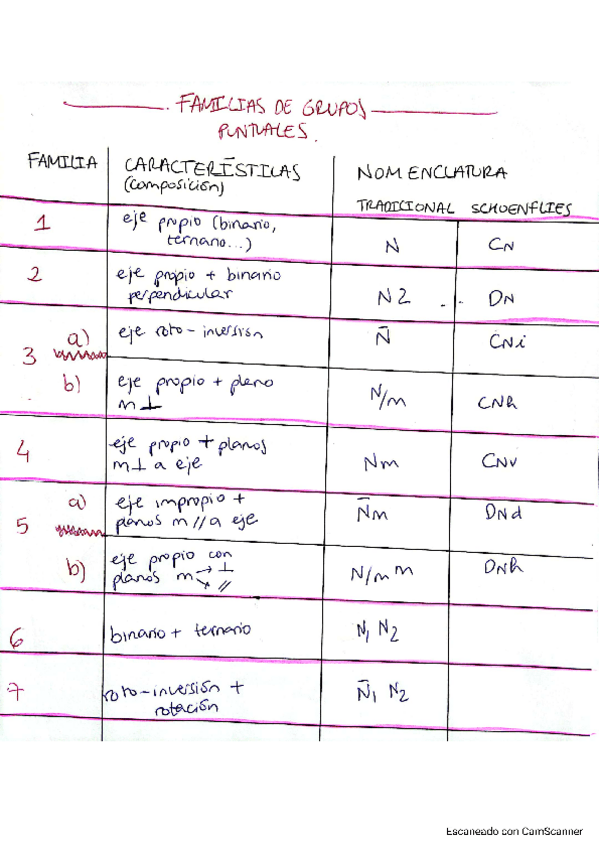 FAMILIAS DE GRUPOS
PUNTUALES.
FAMILIA CARACTERÍSTICAS NOMENCLATURA
(composición)
TRADICIONAL SCHOENFLIES
1 eje propio (binario, N CN
ternario...)
2 eje propio + binario N2 DN
perpendicular
3 a) eje roto-inversión N̄ CNi
b) eje propio + plano N/m CNh
m ⊥
4 eje propio + planos Nm CNv
m ⊥ a eje
5 a) eje impropio + N̄m DNd
planos m // a eje
b) eje propio con N/m m DNh
planos m → ⊥
→ //
6 binario + ternario N₁ N₂
7 roto-inversión + N̄₁ N₂
rotación
Escaneado con CamScanner